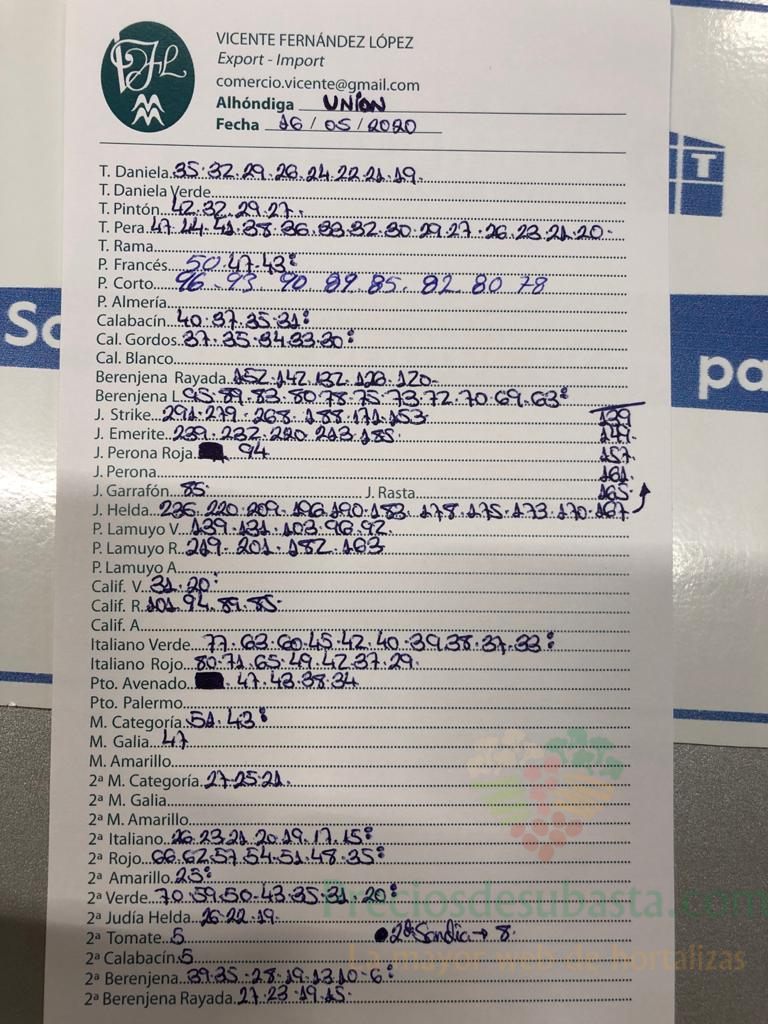 VICENTE FERNÁNDEZ LÓPEZ
Export - Import
comercio.vicente@gmail.com
Alhóndiga UNION
Fecha 16/05/2020
T. Daniela 35.32.29.26.24.22.21.19.
T. Daniela Verde
T. Pintón 42.32.29.27.
T. Pera 47.44.41.38.36.33.32.30.29.27.26.23.21.20.
T. Rama
P. Francés 50.47.43:
P. Corto 96.93.90.89.85.82.80.78
P. Almería
Calabacín 40.37.35.31:
Cal. Gordos 37.35.34.33.30:
Cal. Blanco
Berenjena Rayada 152.142.132.128.120.
Berenjena L. 95.89.83.80.78.75.73.72.70.69.63:
J. Strike 291.279.268.188.171.153 139
J. Emerite 239.232.220.213.185. 149.
J. Perona Roja 94 157.
J. Perona 161.
J. Garrafón 85 J. Rasta 165.
J. Helda 236.220.209.196.190.183.178.175.173.170.167
P. Lamuyo V. 139.131.103.96.92.
P. Lamuyo R. 219.201.182.163
P. Lamuyo A
Calif. V. 31.20:
Calif. R. 101.94.89.85.
Calif. A
Italiano Verde 77.63.60.45.42.40.39.38.37.33:
Italiano Rojo 80.71.65.49.42.37.29.
Pto. Avenado 47.43.38.34
Pto. Palermo
M. Categoría 51.43:
M. Galia 47
M. Amarillo
2ª M. Categoría 27.25.21.
2ª M. Galia
2ª M. Amarillo
2ª Italiano 26.23.21.20.19.17.15:
2ª Rojo 66.62.57.54.51.48.35:
2ª Amarillo 25:
2ª Verde 70.59.50.43.35.31.20:
Preciosdesubasta.com
2ª Judía Helda 26.22.19.
2ª Tomate 5 2ª Sandía → 8.
La mayor web de hortalizas
2ª Calabacín 5
2ª Berenjena 39.35.28.19.13.10.6:
2ª Berenjena Rayada 27.23.19.15.
So
T
pa